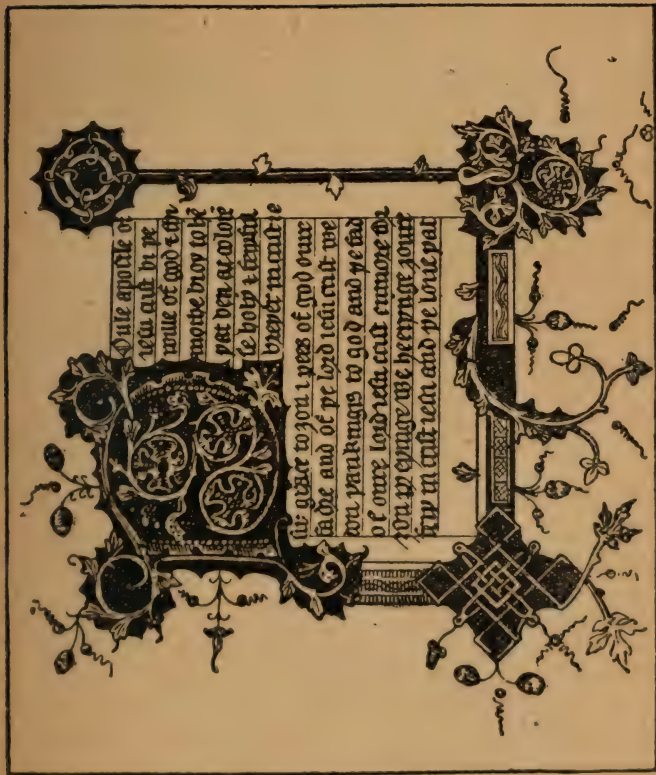 Oule apostle of
iesu crist bi þe
wille of god & thi
mothe broþ to hē
þat ben at coloſ
ſe holy & feyþful
breþerē in crist ie
su: grace to ȝou & pees of god oure
fadir and of þe lord iesu crist we
don þankingis to god and þe fad
of oure lord iesu crist euermore for
ȝou preyinge we heeringe ȝoure
feiþ in crist iesu and þe loue þat